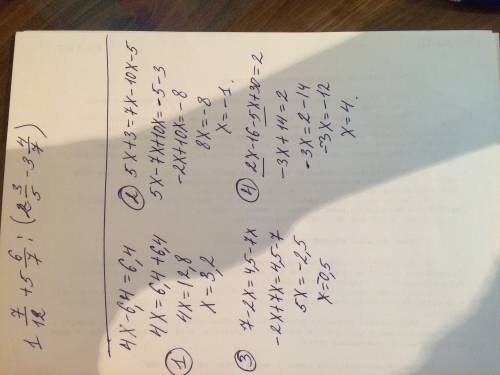 1 7/12 + 5 6/7 : (2 3/5 - 3 4/7)
①
4x-6,4=6,4
4x=6,4+6,4
4x=12,8
x=3,2
②
5x+3=7x-10x-5
5x-7x+10x=-5-3
-2x+10x=-8
8x=-8
x=-1.
③
7-2x=4,5-7x
-2x+7x=4,5-7
5x=-2,5
x=-0,5
④
2x-16-5x+30=2
-3x+14=2
-3x=2-14
-3x=-12
x=4.